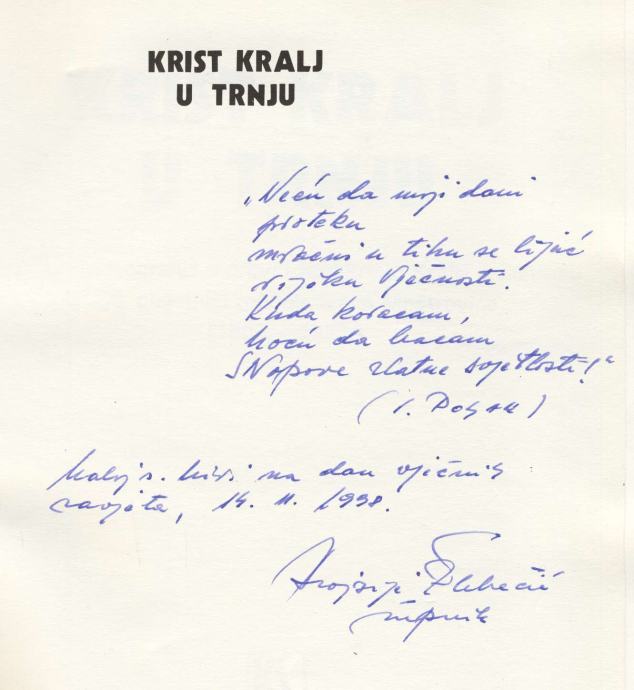 KRIST KRALJ
U TRNJU
„Neću da moji dani
proteku
mračni u tihu se lijuć
rijeku vječnosti.
Kuda koracam,
hoću da bacam
SNopove zlatne svjetlosti!“
na dan vječnih
zavjeta, 14. 11. 1998.
župnik